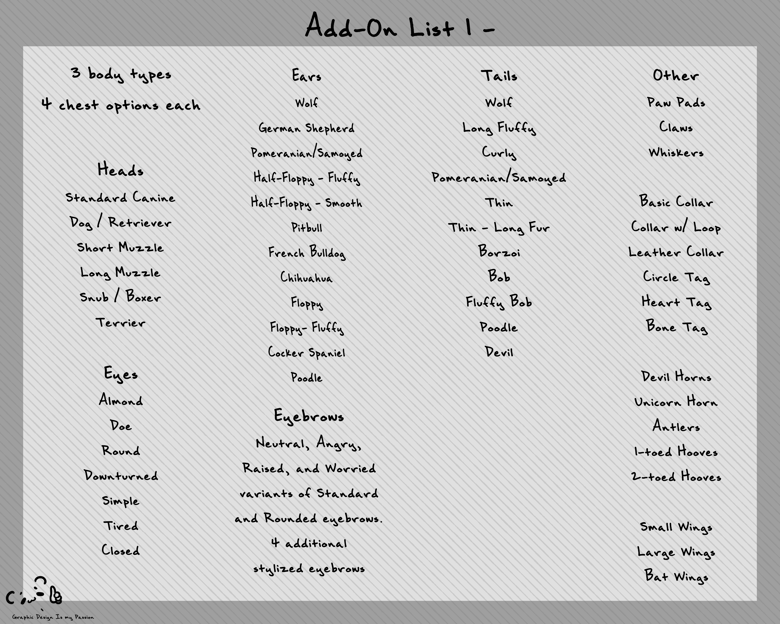 Add-On List 1 -
3 body types
4 chest options each
Heads
Standard Canine
Dog / Retriever
Short Muzzle
Long Muzzle
Snub / Boxer
Terrier
Eyes
Almond
Doe
Round
Downturned
Simple
Tired
Closed
Ears
Wolf
German Shepherd
Pomeranian/Samoyed
Half-Floppy - Fluffy
Half-Floppy - Smooth
Pitbull
French Bulldog
Chihuahua
Floppy
Floppy- Fluffy
Cocker Spaniel
Poodle
Eyebrows
Neutral, Angry,
Raised, and Worried
variants of Standard
and Rounded eyebrows.
4 additional
stylized eyebrows
Tails
Wolf
Long Fluffy
Curly
Pomeranian/Samoyed
Thin
Thin - Long Fur
Borzoi
Bob
Fluffy Bob
Poodle
Devil
Other
Paw Pads
Claws
Whiskers
Basic Collar
Collar w/ Loop
Leather Collar
Circle Tag
Heart Tag
Bone Tag
Devil Horns
Unicorn Horn
Antlers
1-toed Hooves
2-toed Hooves
Small Wings
Large Wings
Bat Wings
Graphic Design Is my Passion